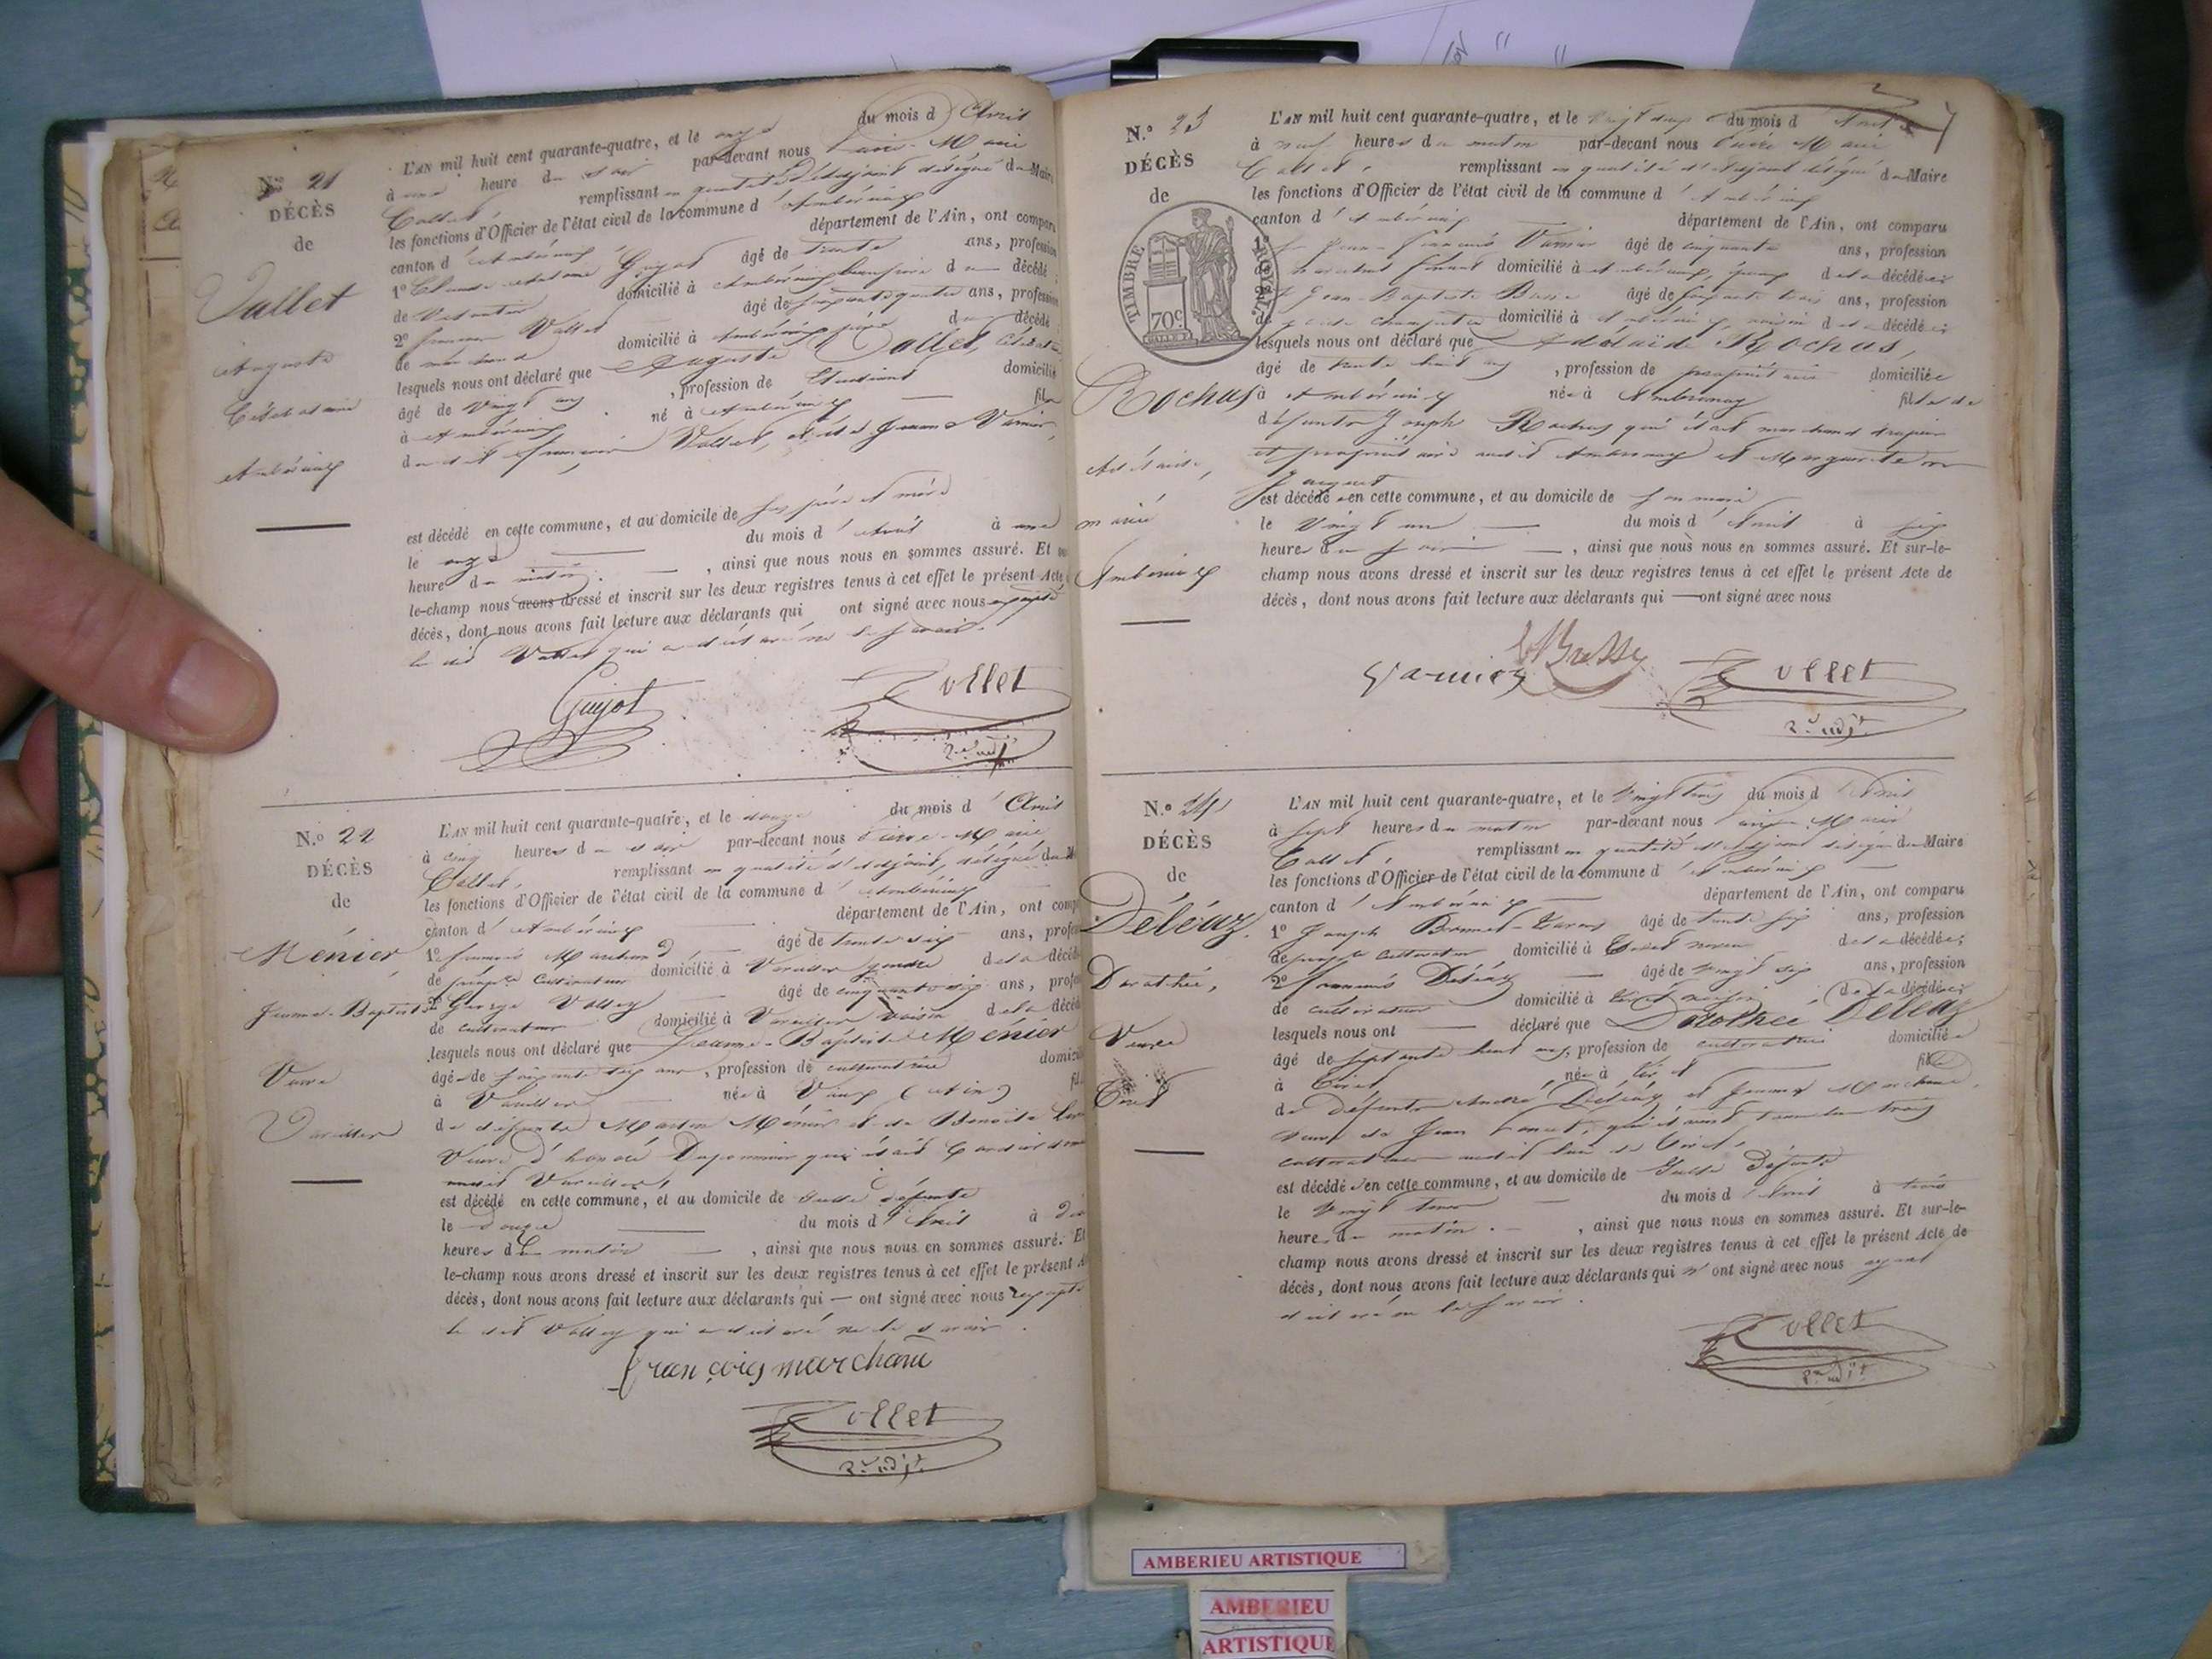 N.º 21
DÉCÈS
de
Vallet
Auguste
Célibataire
Ambérieux
L'AN mil huit cent quarante-quatre, et le onze du mois d'Avril
à une heure du soir par-devant nous Marie
Collet, remplissant en qualité d'adjoint délégué du Maire
les fonctions d'Officier de l'état civil de la commune d'Ambérieux
canton d'Ambérieux département de l'Ain, ont comparu
1º Claude Antoine Guyot âgé de trente ans, profession
de domicilié à Ambérieux beau frère du décédé;
2º françois Vallet âgé de soixante quatre ans, profession
de marchand domicilié à Ambérieux père du décédé
lesquels nous ont déclaré que Auguste Vallet, Célibataire
âgé de vingt ans, profession de Etudiant domicilié
à Ambérieux né à Ambérieux fils
du dit françois Vallet, et de Jeanne Varnier,
est décédé en cette commune, et au domicile de ses père et mère
le onze du mois d'Avril à une
heure du matin, ainsi que nous nous en sommes assuré. Et sur-
le-champ nous avons dressé et inscrit sur les deux registres tenus à cet effet le présent Acte
décès, dont nous avons fait lecture aux déclarants qui ont signé avec nous excepté
le dit Vallet qui a déclaré ne le savoir.
Guyot
Collet
2e adjt
N.º 22
DÉCÈS
de
Ménier
Jeanne-Baptiste
Veuve
Vareilles
L'AN mil huit cent quarante-quatre, et le douze du mois d'Avril
à cinq heures du soir par-devant nous Marie
Collet, remplissant en qualité d'adjoint, délégué du M
les fonctions d'Officier de l'état civil de la commune d'Ambérieux
canton d'Ambérieux département de l'Ain, ont comp
1º françois Marchand âgé de trente six ans, profes
de cultivateur domicilié à Vareilles gendre de la décéd
2º George Valley âgé de cinquante six ans, profes
de cultivateur domicilié à Vareilles voisin de la décéd
lesquels nous ont déclaré que Jeanne-Baptiste Menier
âgée de soixante six ans, profession de cultivatrice domicil
à Vareilles née à Vaux (Ain) fil
de défunts Martin Ménier et de Benoite
Veuve d'honoré qui était Cordonnier
audit Vareilles
est décédé en cette commune, et au domicile de ladite défunte
le Douze du mois d'Avril à
heures du matin, ainsi que nous nous en sommes assuré. Et
le-champ nous avons dressé et inscrit sur les deux registres tenus à cet effet le présent A
décès, dont nous avons fait lecture aux déclarants qui — ont signé avec nous excepté
le dit Valley qui a déclaré ne le savoir.
françois marchand
Collet
2e adjt
N.º 23
DÉCÈS
de
TIMBRE ROYAL
70c
Rochas
Adélaide,
mariée
Ambérieux
L'AN mil huit cent quarante-quatre, et le vingt deux du mois d'Avril
à neuf heures du matin par-devant nous Marie
Collet, remplissant en qualité d'adjoint délégué du Maire
les fonctions d'Officier de l'état civil de la commune d'Ambérieux
canton d'Ambérieux département de l'Ain, ont comparu
1º Jean-François Varnier âgé de cinquante ans, profession
de domicilié à Ambérieux, époux de la décédée;
2º Jean-Baptiste Bresse âgé de soixante trois ans, profession
de garde champêtre domicilié à Ambérieux, voisin de la décédée;
lesquels nous ont déclaré que Adélaïde Rochas,
âgé de trente huit ans, profession de propriétaire domiciliée
à Ambérieux née à Ambronay fille de
défunts Joseph Rochas qui était marchand drapier
et propriétaire audit Ambronay et Marguerite
est décédée en cette commune, et au domicile de son mari
le Vingt un du mois d'Avril à six
heures du soir, ainsi que nous nous en sommes assuré. Et sur-le-
champ nous avons dressé et inscrit sur les deux registres tenus à cet effet le présent Acte de
décès, dont nous avons fait lecture aux déclarants qui — ont signé avec nous
Varnier
Bresse
Collet
2e adjt
N.º 24
DÉCÈS
de
Déléaz.
Dorothée,
Veuve
Tiret
L'AN mil huit cent quarante-quatre, et le vingt trois du mois d'Avril
à sept heures du matin par-devant nous Marie
Collet, remplissant en qualité d'adjoint délégué du Maire
les fonctions d'Officier de l'état civil de la commune d'Ambérieux
canton d'Ambérieux département de l'Ain, ont comparu
1º Joseph âgé de trente six ans, profession
de cultivateur domicilié à Tiret neveu de la décédée;
2º françois Déléaz âgé de vingt six ans, profession
de cultivateur domicilié à Tiret de la décédée;
lesquels nous ont déclaré que Dorothée Déléaz
âgé de septante huit ans, profession de cultivatrice domiciliée
à Tiret née à Tiret fille
de défunts André Déléaz et Jeanne Marchand,
veuve de Jean qui étaient tous les trois
cultivateurs audit lieu de Tiret,
est décédée en cette commune, et au domicile de ladite Défunte
le Vingt trois du mois d'Avril à trois
heures du matin, ainsi que nous nous en sommes assuré. Et sur-le-
champ nous avons dressé et inscrit sur les deux registres tenus à cet effet le présent Acte de
décès, dont nous avons fait lecture aux déclarants qui n'ont signé avec nous ayant
déclaré ne le savoir.
Collet
2e adjt
AMBERIEU ARTISTIQUE
AMBERIEU
ARTISTIQUE